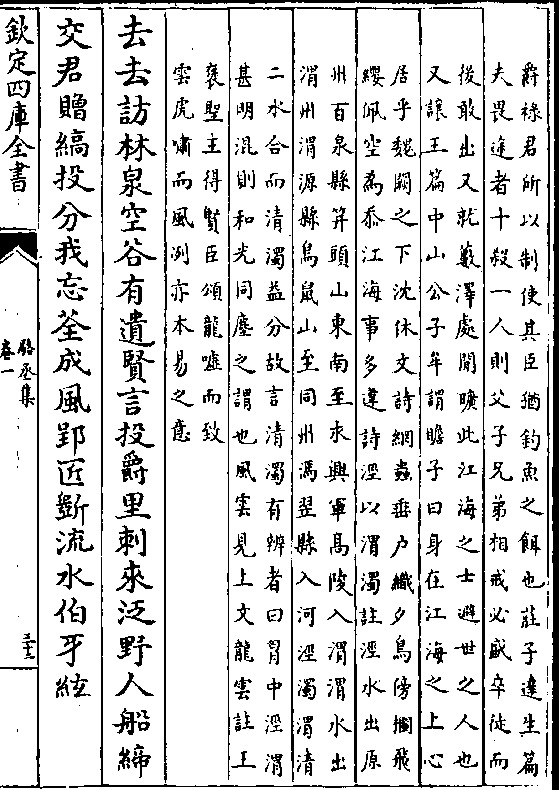 爵祿君所以制使其臣猶釣魚之餌也莊子達生篇
夫畏途者十殺一人則父子兄弟相戒必盛卒徒而
後敢出又就藪澤處閒曠此江海之士避世之人也
又讓王篇中山公子牟謂瞻子曰身在江海之上心
居乎魏闕之下沈休文詩網蟲垂户織夕鳥傍櫩飛
纓佩空爲忝江海事多違詩涇以渭濁註涇水出原
州百泉縣筓頭山東南至永興軍髙陵入渭渭水出
渭州渭源縣鳥鼠山至同州馮翌縣入河涇濁渭清
二水合而清濁益分故言清濁有辨者曰胷中涇渭
甚明混則和光同塵之謂也風雲見上文龍雲註王
襃聖主得賢臣頌龍嘘而致
雲虎嘯而風冽亦本易之意
去去訪林泉空谷有遺賢言投爵里刺來泛野人船締
交君贈縞投分我忘荃成風郢匠斵流水伯牙絃
欽定四庫全書
駱丞集
卷一
三十三